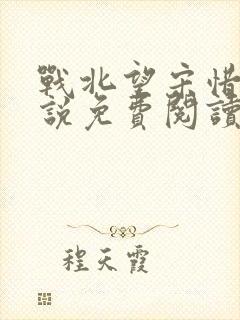 戰北望宋惜
說免費閱讀
程天霞